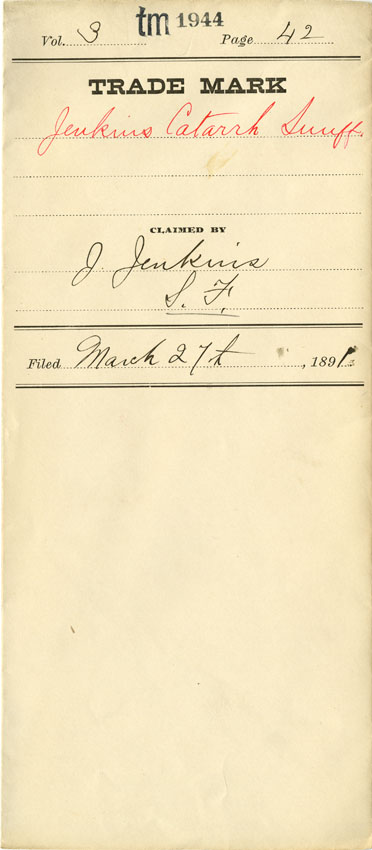 Vol. 3 tm 1944 Page 42
TRADE MARK
Jenkins Catarrh Snuff.
CLAIMED BY
J. Jenkins
S. F.
Filed March 27th, 1891.